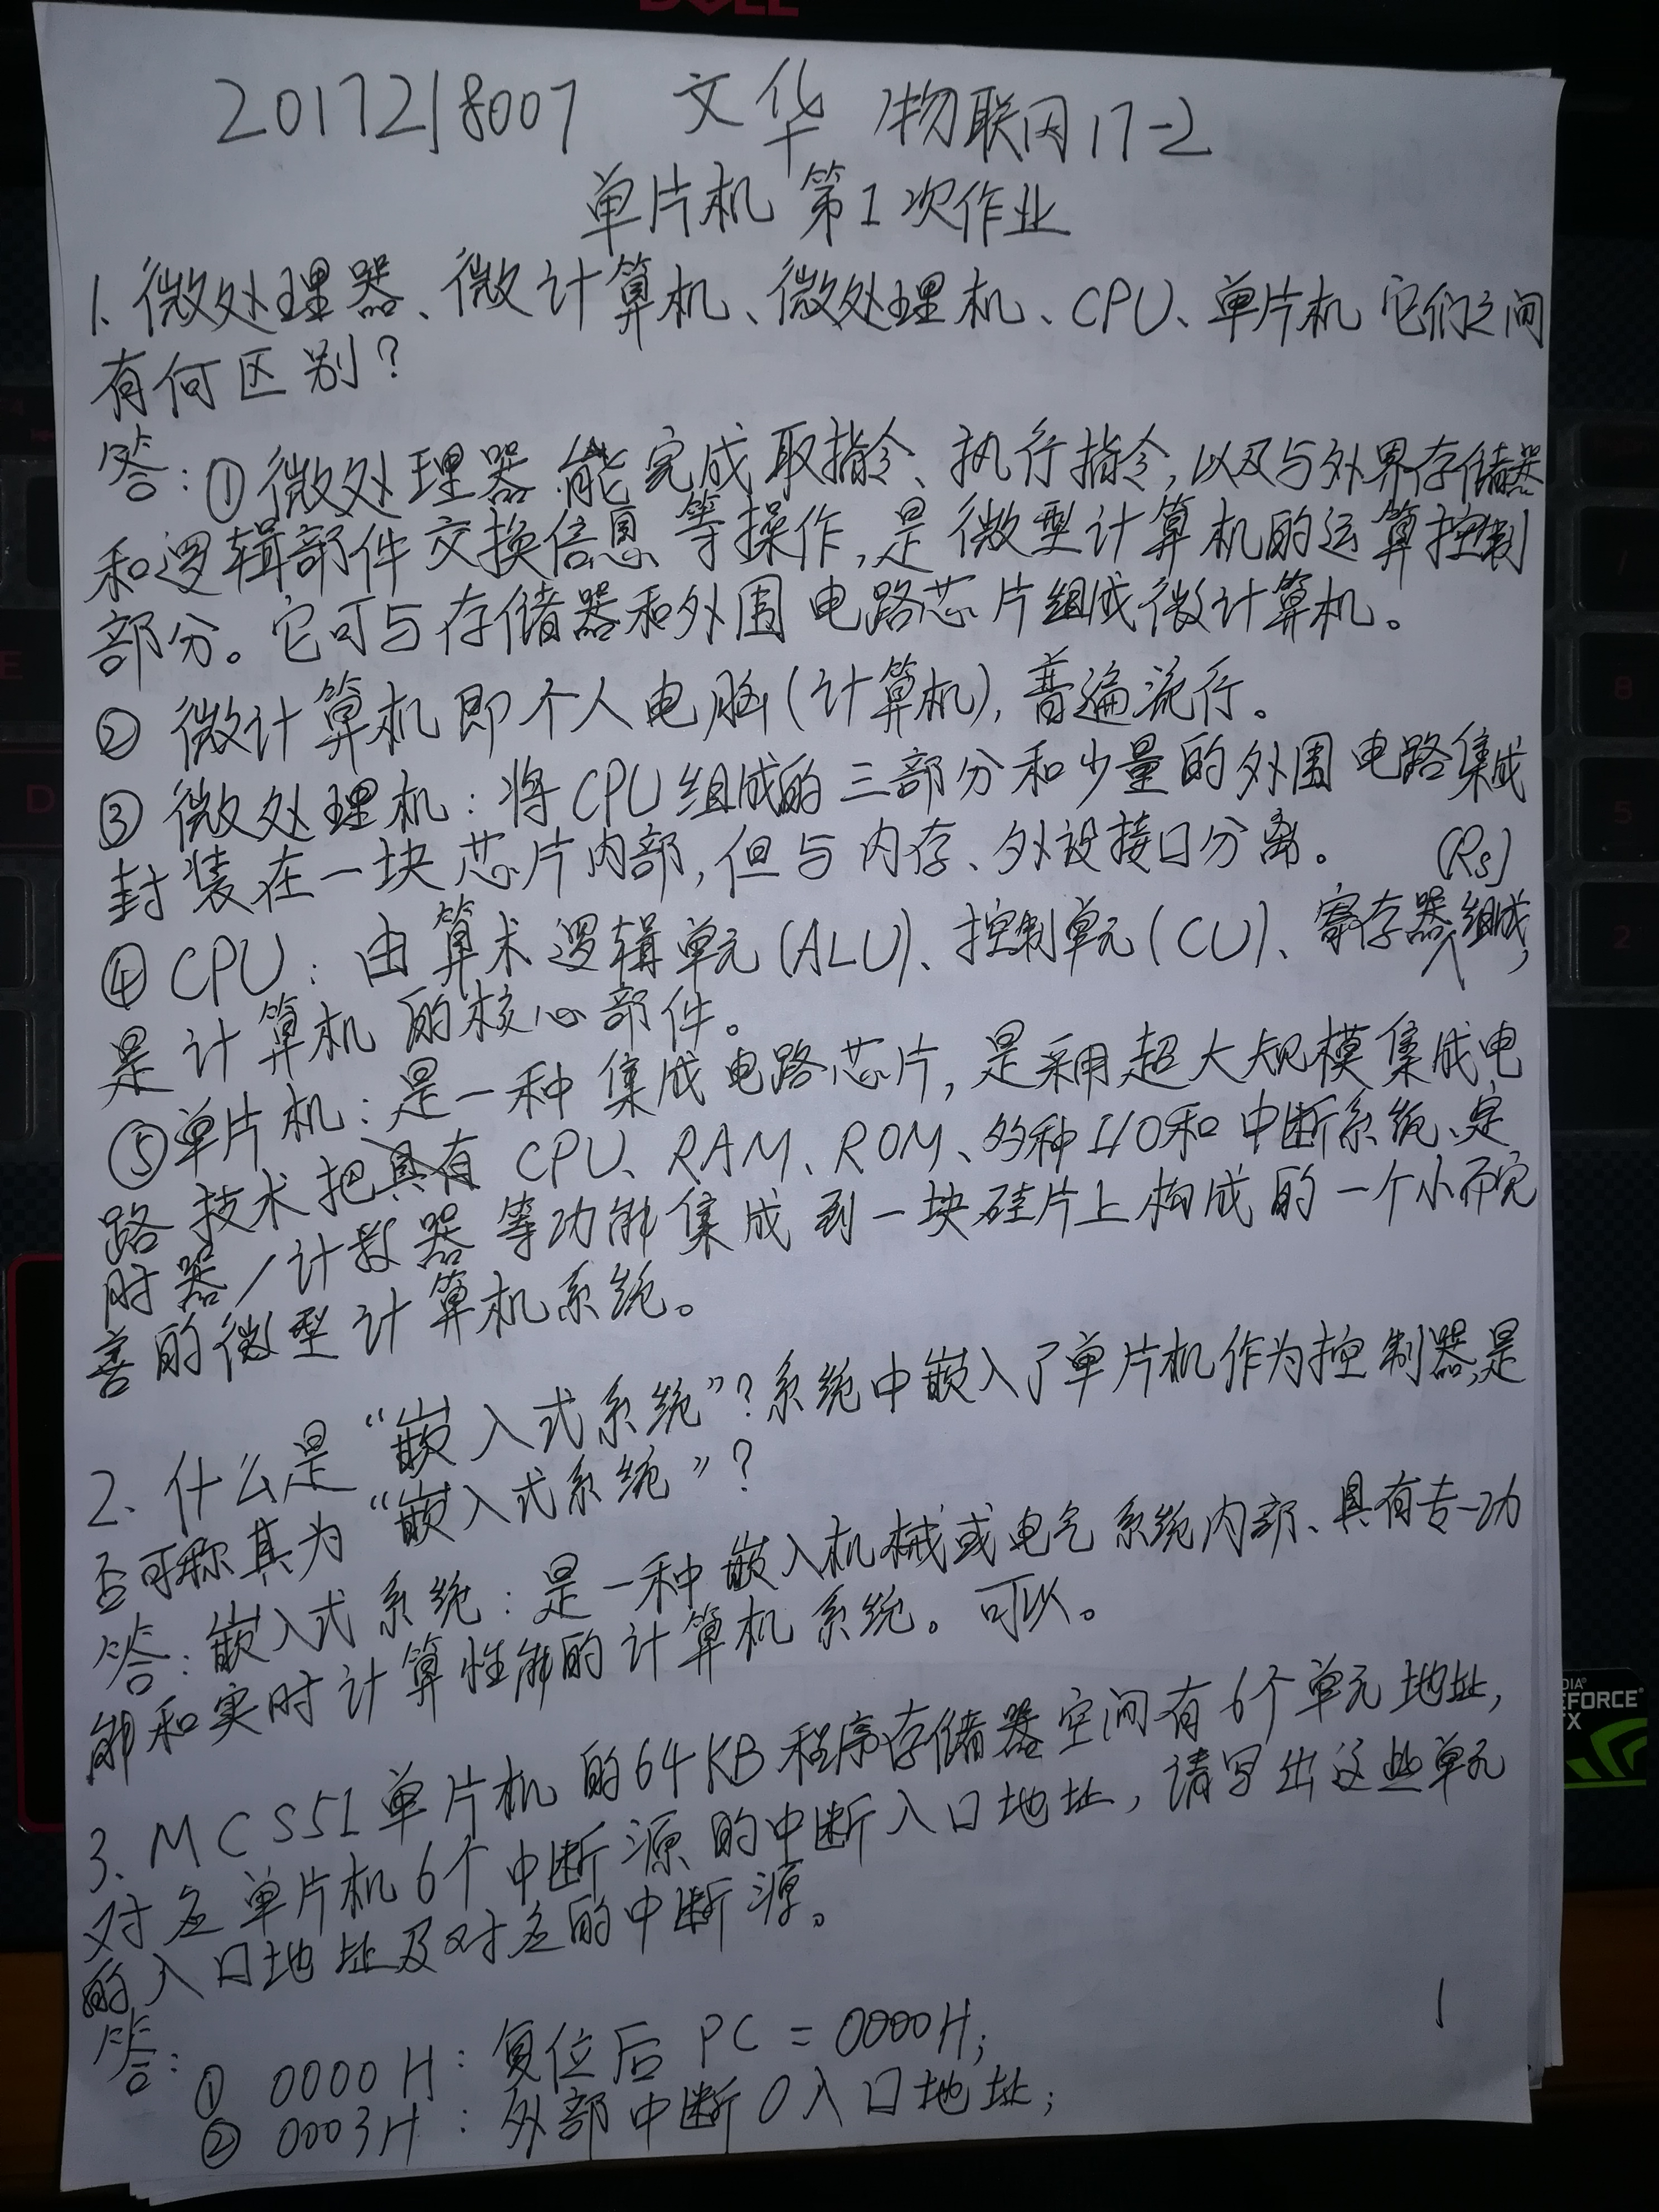 DELL
2017218007 文华 物联网17-2
单片机 第1次作业
1. 微处理器、微计算机、微处理机、CPU、单片机 它们之间
有何区别?
答:①微处理器能完成取指令、执行指令,以及与外界存储器
和逻辑部件交换信息等操作,是微型计算机的运算控制
部分。它可与存储器和外围电路芯片组成微计算机。
② 微计算机即个人电脑(计算机),普遍流行。
③ 微处理机:将CPU组成的三部分和少量的外围电路集成
封装在一块芯片内部,但与内存、外设接口分离。
④ CPU:由算术逻辑单元(ALU)、控制单元(CU)、寄存器(Rs)组成,
是计算机的核心部件。
⑤单片机:是一种集成电路芯片,是采用超大规模集成电
路技术把具有 CPU、RAM、ROM、多种I/O和中断系统、定
时器/计数器等功能集成到一块硅片上构成的一个小而完
善的微型计算机系统。
2、什么是“嵌入式系统”?系统中嵌入了单片机作为控制器,是
否可称其为“嵌入式系统”?
答:嵌入式系统:是一种嵌入机械或电气系统内部、具有专一功
能和实时计算性能的计算机系统。可以。
3、MCS51单片机的64KB程序存储器空间有6个单元地址,
对应单片机6个中断源的中断入口地址,请写出这些单元
的入口地址及对应的中断源。
答:① 0000H:复位后 PC=0000H;
② 0003H:外部中断0入口地址;
1
8
5
2
EFORCE